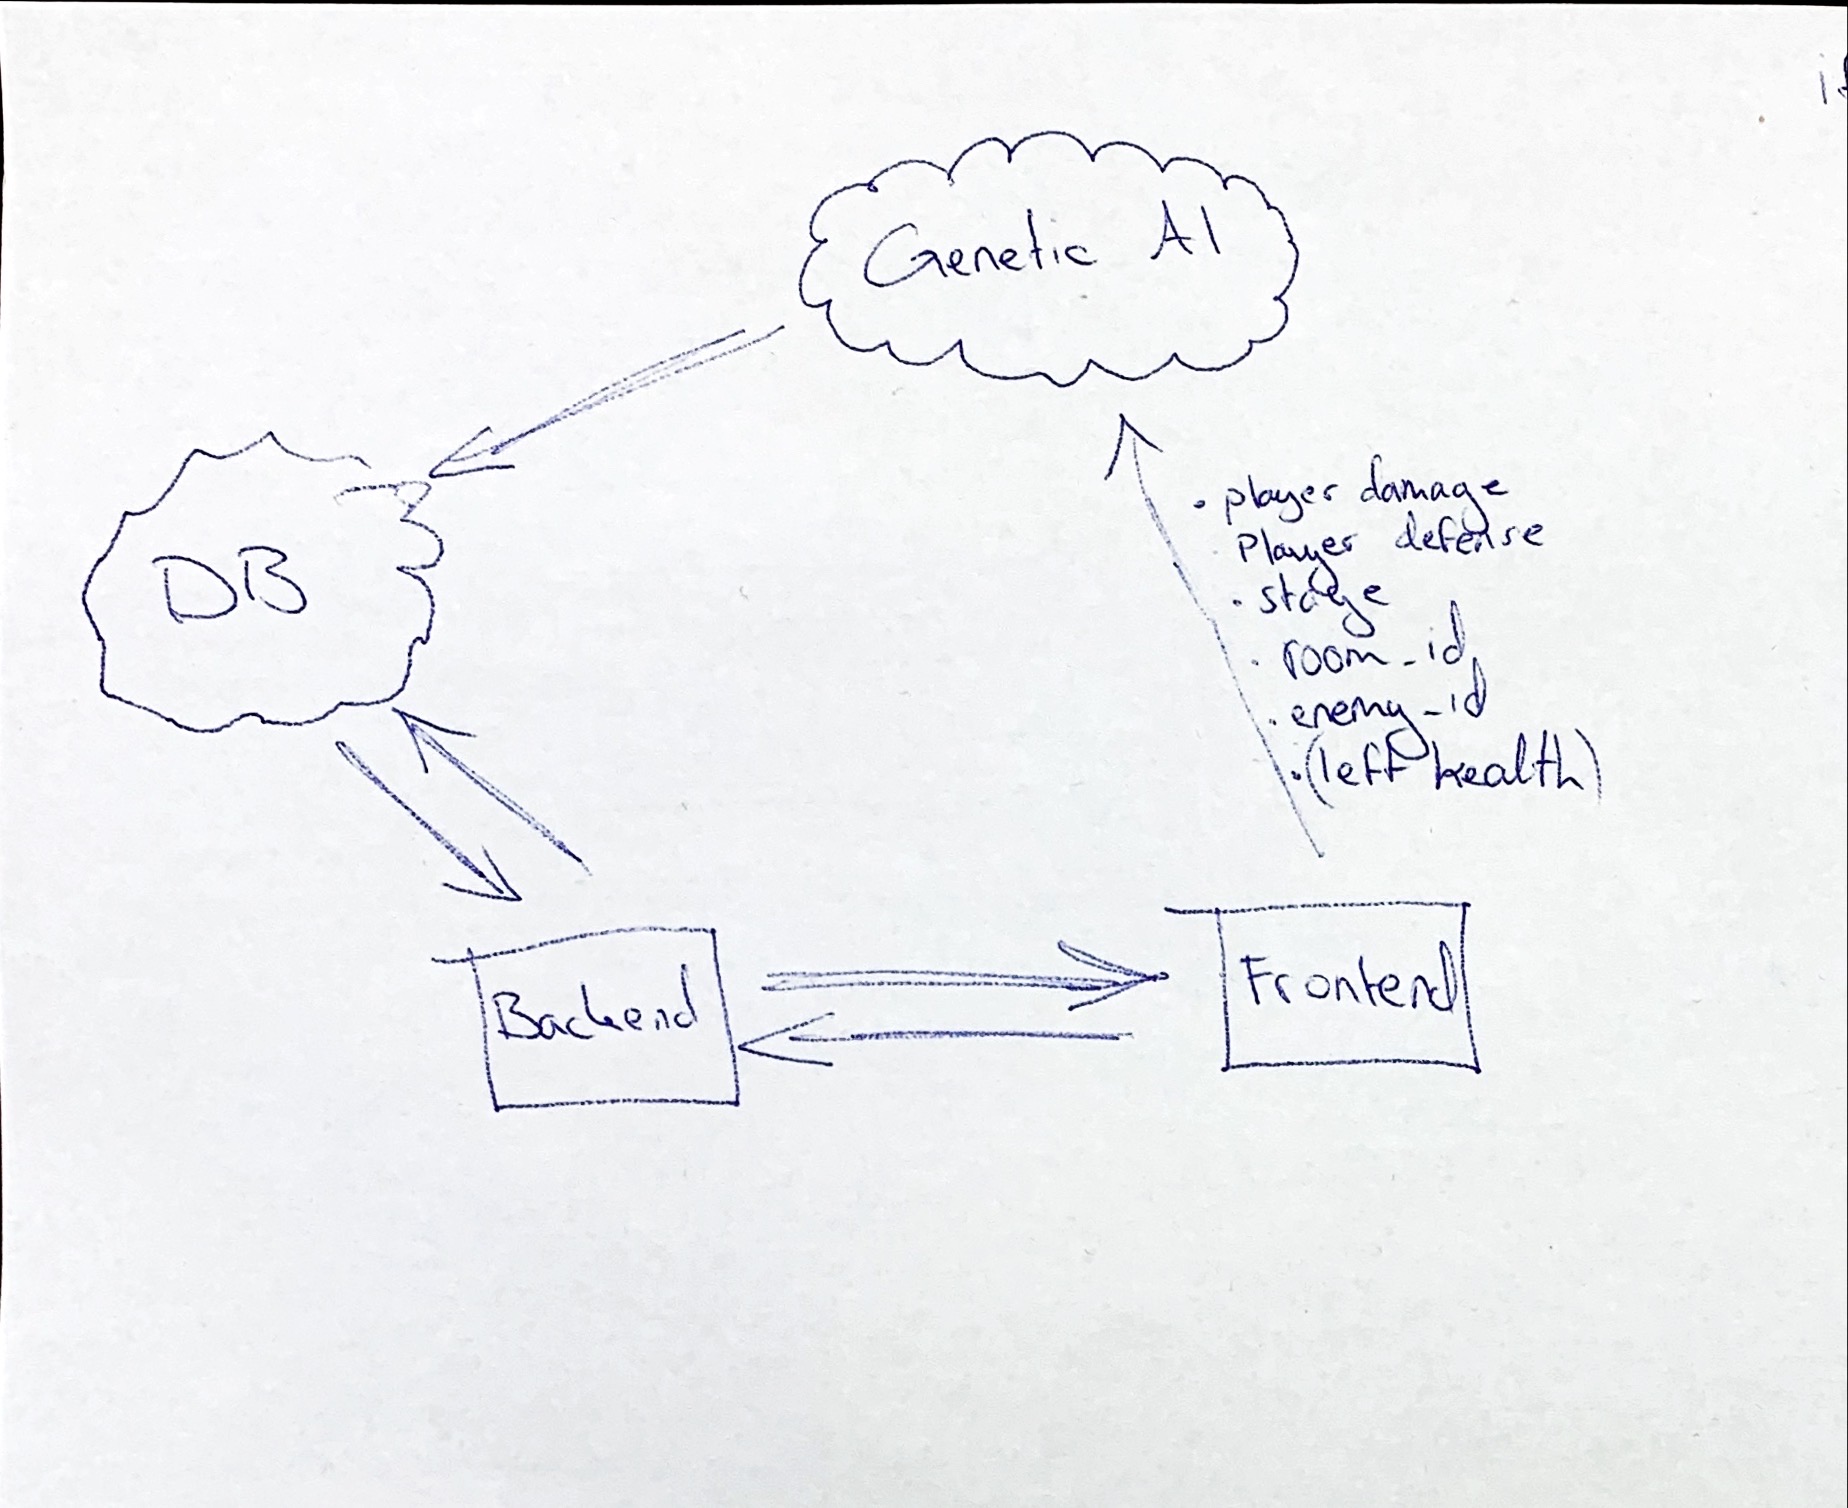 Genetic AI
DB
• player damage
Player defense
• stage
• room_id
• enemy_id
• (left health)
Backend
Frontend